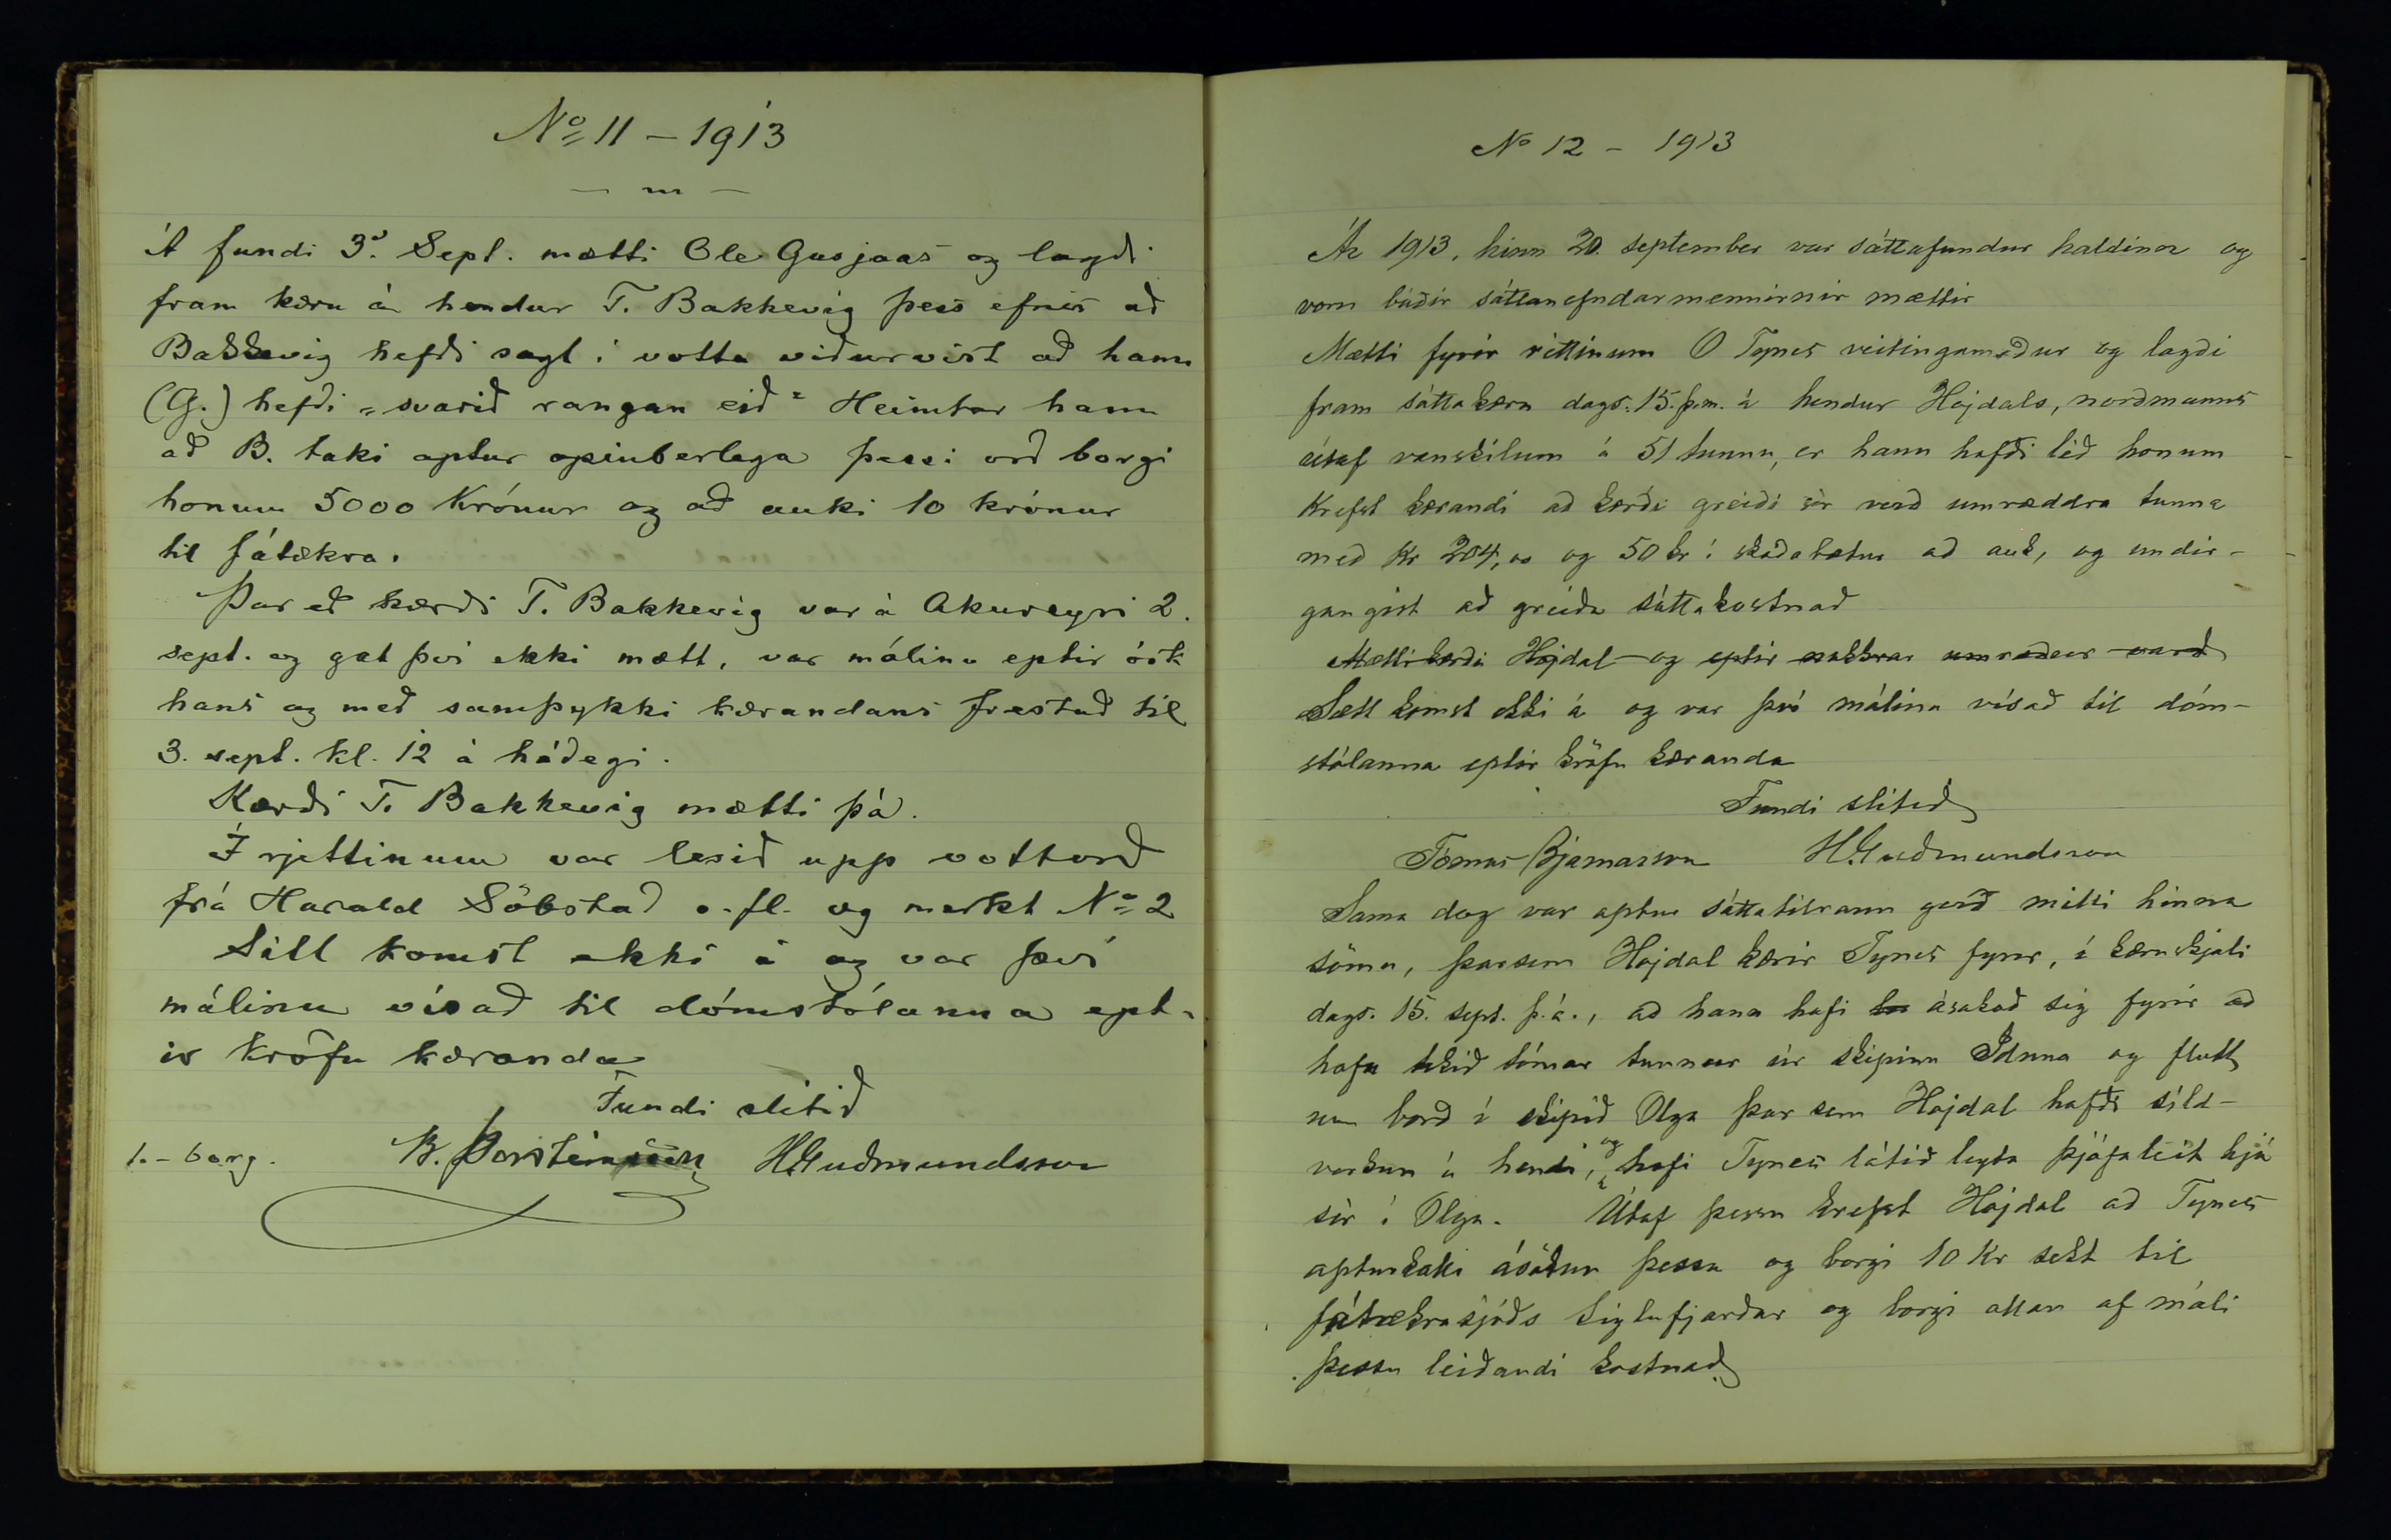 No 11 – 1913
— m —
Á fundi 3. Sept. mætti Ole Gusjaas og lagði
fram kæru á hendur T. Bakkevig þess efnis að
Bakkevig hefði sagt í votta viðurvist að hann
(G.) hefði „svarið rangan eið“ Heimtar hann
að B. taki aptur opinberlega þessi orð borgi
honum 5000 Krónur og að auki 10 krónur
til fátækra.
Þar eð kærði T. Bakkevig var á Akureyri 2.
sept. og gat því ekki mætt, var málinu eptir ósk
hans og með samþykki kærandans frestað til
3. sept. kl. 12 á hádegi.
Kærði T. Bakkevig mætti þá.
Í rjettinum var lesið upp vottorð
frá Harald Söbstad o. fl. og merkt No 2
Sátt komst ekki á og var því
málinu vísað til dómstólanna ept-
ir kröfu kæranda
Fundi slitið
1.- borg. B. Þorsteinsson HGuðmundsson
No 12 – 1913
Ár 1913, hinn 20. september var sáttafundur haldinn og
voru báðir sáttanefndarmennirnir mættir
Mætti fyrir rettinum O Tynes veitingamaður og lagði
fram sáttakæru dags. 15. þ.m. á hendur Hojdals, norðmanns
útaf vanskilum á 51 tunnu, er hann hafði léð honum
Krefst kærandi að kærði greiði sér verð umræddra tunna
með Kr 204,00 og 50 kr í skaðabætur að auk, og undir-
gangist að greiða sáttakostnað
Mætti kærði Hojdal og eptir nokkrar umræður varð
Sætt komst ekki á og var því málinu vísað til dóm-
stólanna eptir kröfu kæranda
Fundi slitið
Tómas Bjarnason HGuðmundsson
Sama dag var aptur sáttatilraun gerð milli hinna
sömu, þarsem Hojdal kærir Tynes fyrir, í kæruskjali
dags. 15. sept. þ.á., að hann hafi ásakað sig fyrir að
hafa tekið tómar tunnur úr skipinu Idunna og flutt
um borð í skipið Olga þar sem Hojdal hafði síld-
verkun á hendi, og hafi Tynes látið leyta þjófaleit hjá
sér í Olga. Útaf þessu krefst Hojdal að Tynes
apturkalli ásökun þessa og borgi 10 Kr sekt til
fátækrasjóðs Siglufjarðar og borgi allan af máli
þessu leiðandi kostnað